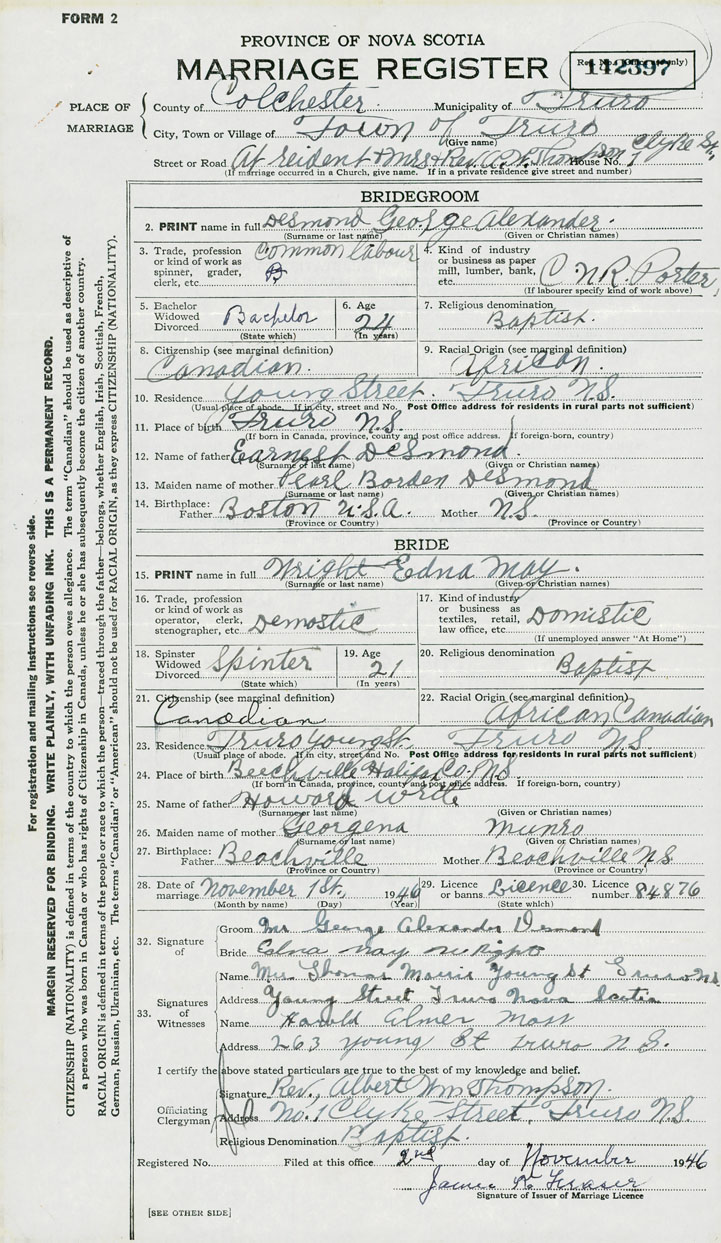 FORM 2
PROVINCE OF NOVA SCOTIA
MARRIAGE REGISTER
Reg. No. (Office use only)
142397
PLACE OF MARRIAGE
County of Colchester Municipality of Truro
City, Town or Village of Town of Truro
(Give name)
Street or Road At reident + Mrs + Rev. A. W. Thompson House No. 1 Clyke St.,
(If marriage occurred in a Church, give name. If in a private residence give street and number)
BRIDEGROOM
2. PRINT name in full Desmond George Alexander.
(Surname or last name) (Given or Christian names)
3. Trade, profession or kind of work as spinner, grader, clerk, etc. Common labour
4. Kind of industry or business as paper mill, lumber, bank, etc. C.N.R. Porter,
(If labourer specify kind of work above)
5. Bachelor Widowed Divorced Bachelor
(State which)
6. Age 24
(In years)
7. Religious denomination Baptist.
8. Citizenship (see marginal definition) Canadian.
9. Racial Origin (see marginal definition) African.
10. Residence Young Street. Truro N.S.
(Usual place of abode. If in city, street and No. Post Office address for residents in rural parts not sufficient)
11. Place of birth Truro N.S.
(If born in Canada, province, county and post office address. If foreign-born, country)
12. Name of father Earnest Desmond.
(Surname or last name) (Given or Christian names)
13. Maiden name of mother Pearl Borden Desmond
(Surname or last name) (Given or Christian names)
14. Birthplace: Father Boston U.S.A. Mother N.S.
(Province or Country) (Province or Country)
BRIDE
15. PRINT name in full Wright Edna May.
(Surname or last name) (Given or Christian names)
16. Trade, profession or kind of work as operator, clerk, stenographer, etc. Demostic
17. Kind of industry or business as textiles, retail, law office, etc. Domistic
(If unemployed answer "At Home")
18. Spinster Widowed Divorced Spinter
(State which)
19. Age 21
(In years)
20. Religious denomination Baptist
21. Citizenship (see marginal definition) Canadian
22. Racial Origin (see marginal definition) African Canadian
23. Residence Truro Young St. Truro N.S.
(Usual place of abode. If in city, street and No. Post Office address for residents in rural parts not sufficient)
24. Place of birth Beechville Halifax Co. N.S.
(If born in Canada, province, county and post office address. If foreign-born, country)
25. Name of father Howard Write
(Surname or last name) (Given or Christian names)
26. Maiden name of mother Georgena Munro
(Surname or last name) (Given or Christian names)
27. Birthplace: Father Beachville Mother Beachville N.S.
(Province or Country) (Province or Country)
28. Date of marriage November 1St, 1946
(Month by name) (Day) (Year)
29. Licence or banns Licence
(State which)
30. Licence number 84876
32. Signature of
Groom Mr. George Alexander Desmond
Bride Edna May Wright
33. Signatures of Witnesses
Name Mrs. Thomas Morris Young St Truro N.S.
Address Young Street Truro Nova Scotia
Name Harold Elmer Moss
Address 263 Young St Truro N.S.
I certify the above stated particulars are true to the best of my knowledge and belief.
Officiating Clergyman
Signature Rev., Albert Wm Thompson.
Address No. 1 Clyke Street, Truro N.S.
Religious Denomination Baptist.
Registered No. Filed at this office 2nd day of November 1946
Signature of Issuer of Marriage Licence
[SEE OTHER SIDE]
For registration and mailing instructions see reverse side.
MARGIN RESERVED FOR BINDING. WRITE PLAINLY, WITH UNFADING INK. THIS IS A PERMANENT RECORD.
CITIZENSHIP (NATIONALITY) is defined in terms of the country to which the person owes allegiance. The term "Canadian" should be used as descriptive of
a person who was born in Canada or who has rights of Citizenship in Canada, unless he or she has subsequently become the citizen of another country.
RACIAL ORIGIN is defined in terms of the people or race to which the person—traced through the father—belongs, whether English, Irish, Scottish, French,
German, Russian, Ukrainian, etc. The terms "Canadian" or "American" should not be used for RACIAL ORIGIN, as they express CITIZENSHIP (NATIONALITY).